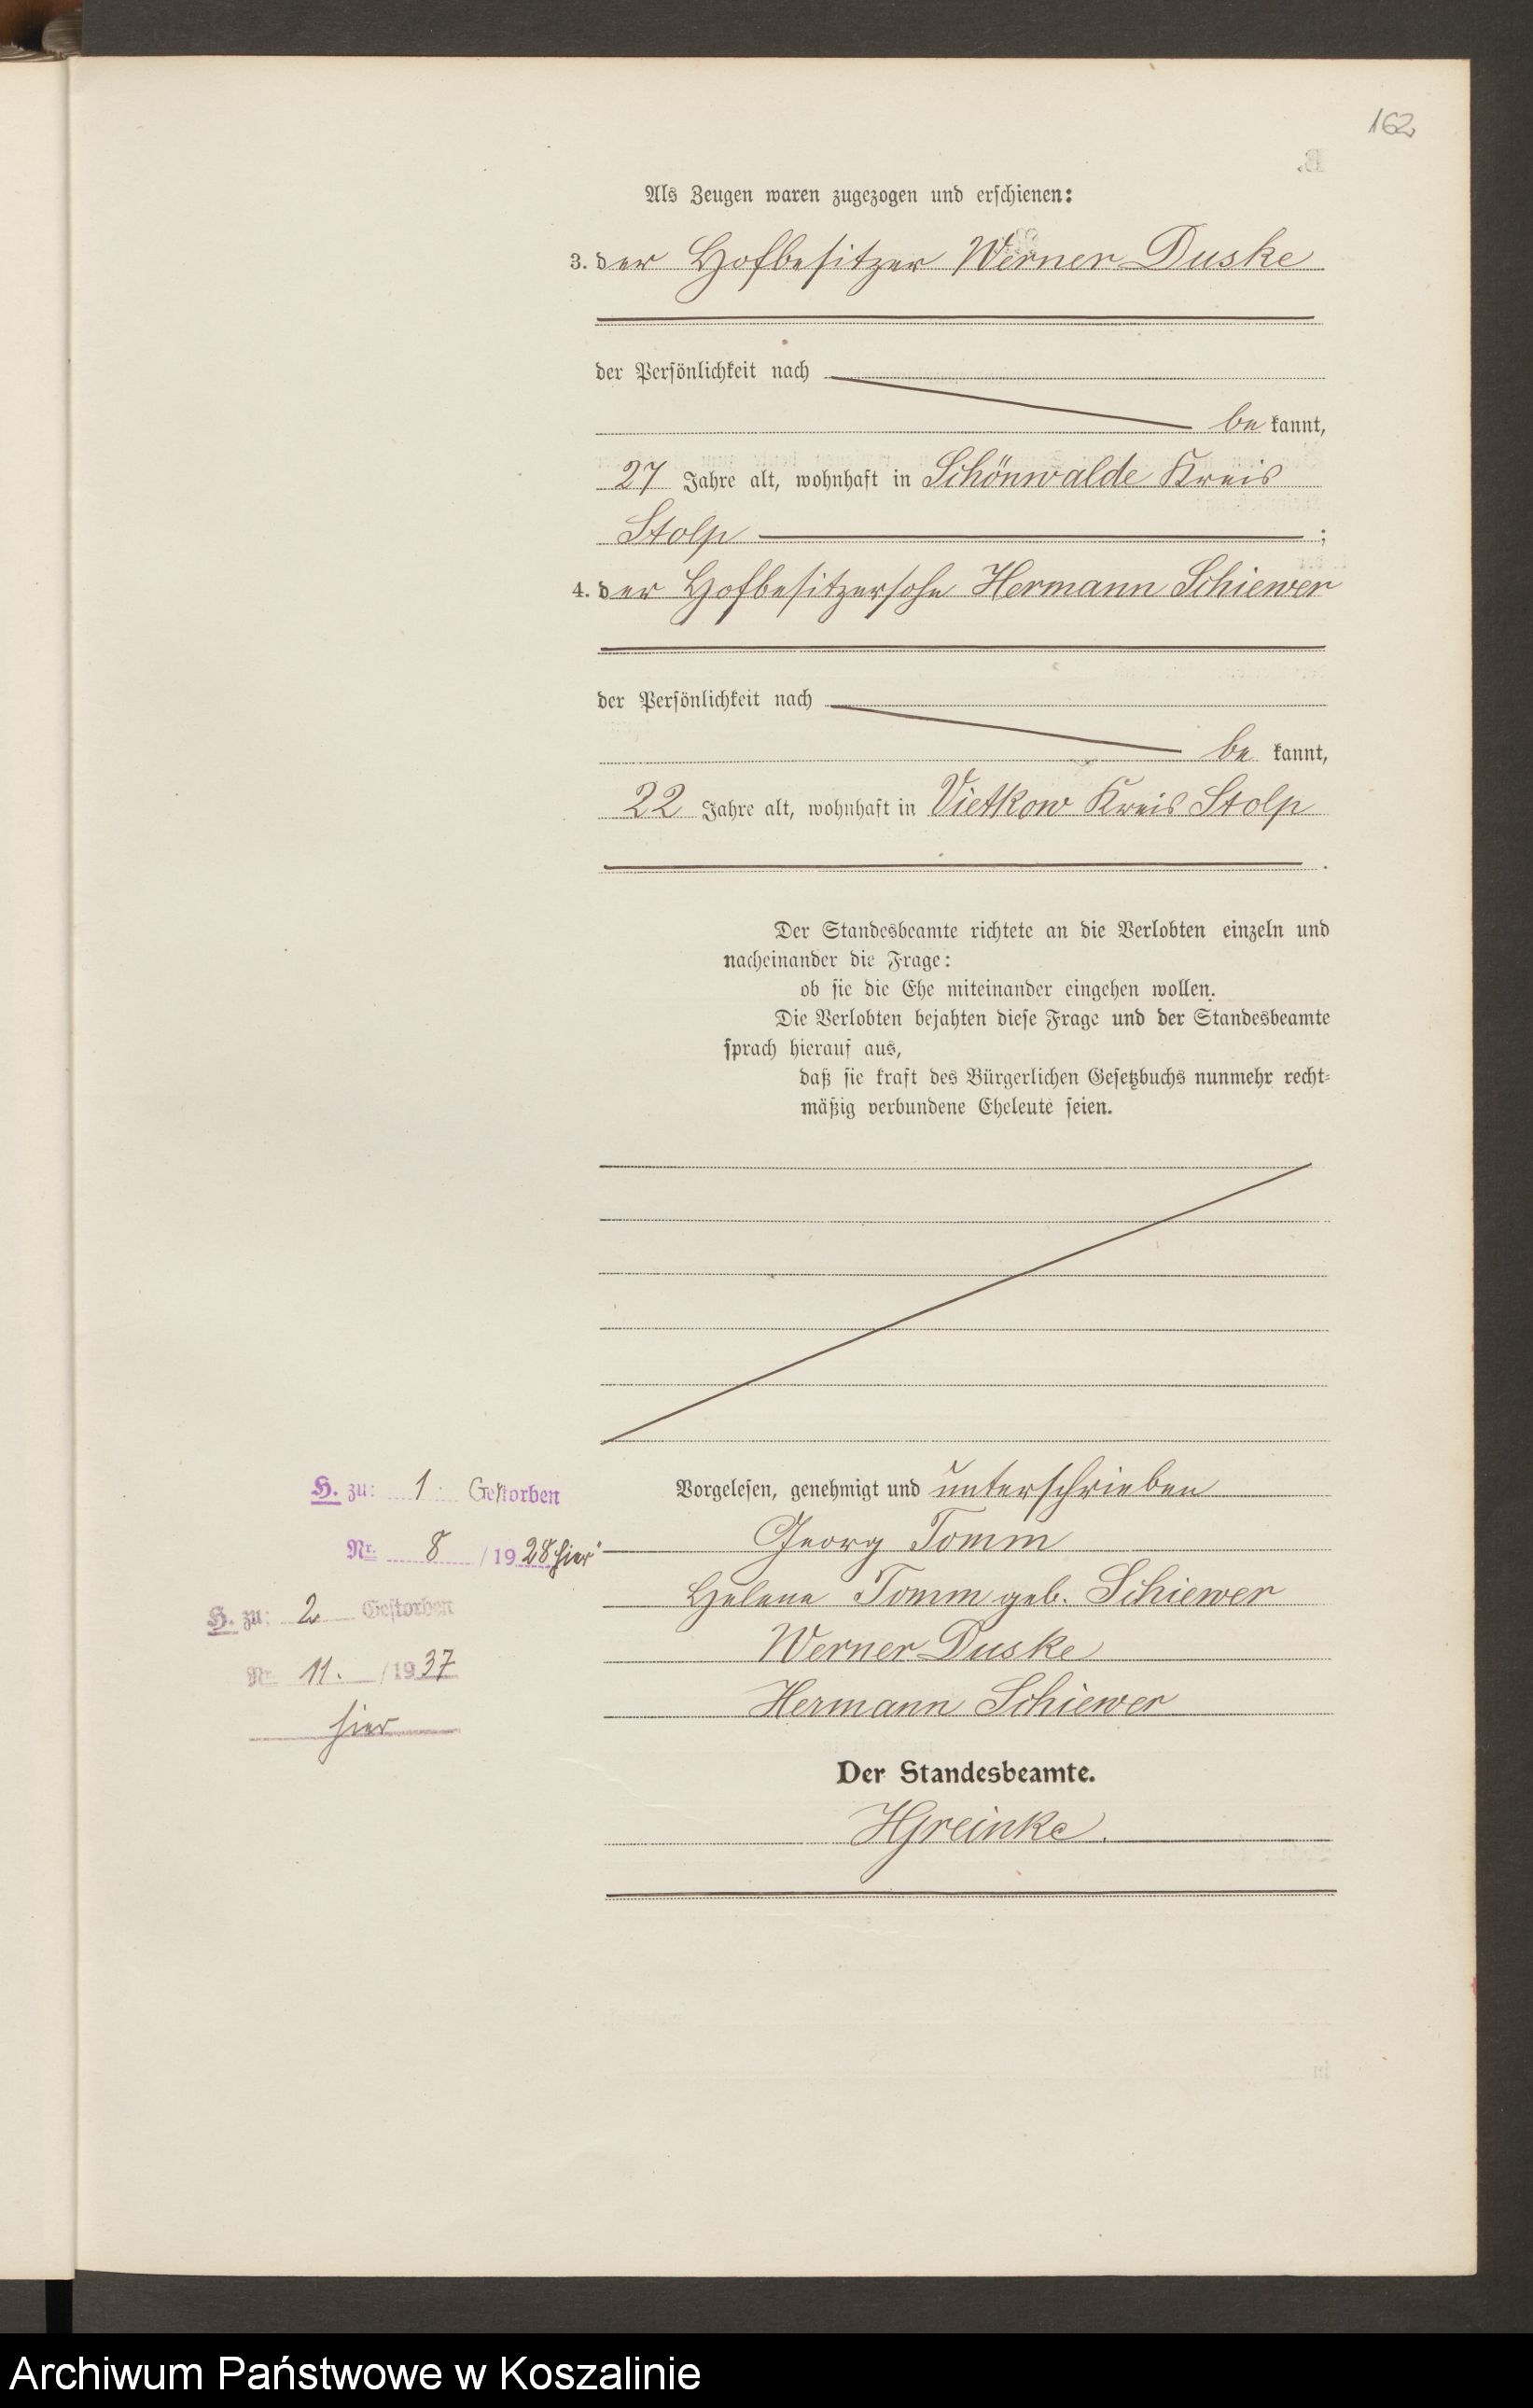 162
Als Zeugen waren zugezogen und erschienen:
3. der Hofbesitzer Werner Duske
der Persönlichkeit nach
be kannt,
27 Jahre alt, wohnhaft in Schönwalde Kreis
Stolp ;
4. der Hofbesitzersohn Hermann Schiewer
der Persönlichkeit nach
be kannt,
22 Jahre alt, wohnhaft in Vietkow Kreis Stolp
.
Der Standesbeamte richtete an die Verlobten einzeln und
nacheinander die Frage:
ob sie die Ehe miteinander eingehen wollen.
Die Verlobten bejahten diese Frage und der Standesbeamte
sprach hierauf aus,
daß sie kraft des Bürgerlichen Gesetzbuchs nunmehr recht-
mäßig verbundene Eheleute seien.
Vorgelesen, genehmigt und unterschrieben
Georg Tomm
Helene Tomm geb. Schiewer
Werner Duske
Hermann Schiewer
Der Standesbeamte.
HGreinke.
H. zu: 1. Gestorben
Nr. 8 / 19 28 hier
H. zu: 2 Gestorben
Nr. 11. / 19 37
hier
Archiwum Państwowe w Koszalinie